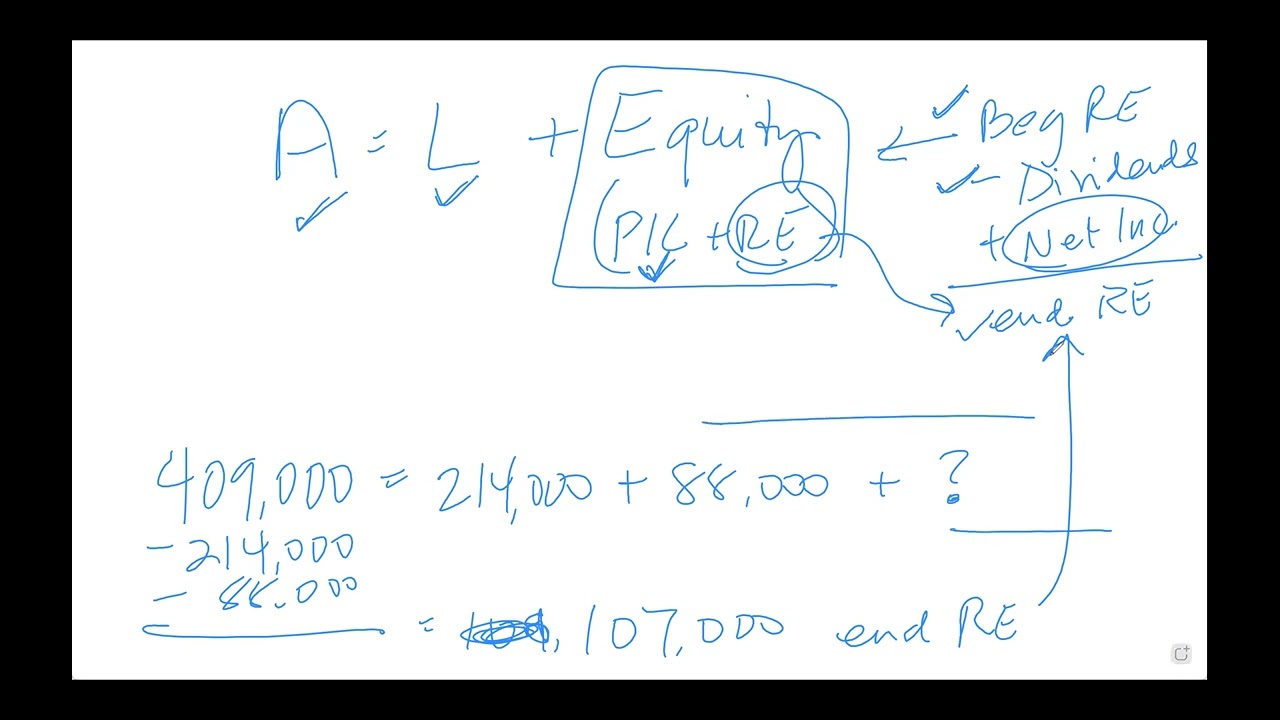 A = L + Equity
(PIC + RE)
Beg RE
- Dividends
+ Net Inc.
end RE
409,000 = 214,000 + 88,000 + ?
- 214,000
- 88.000
= 107,000 end RE